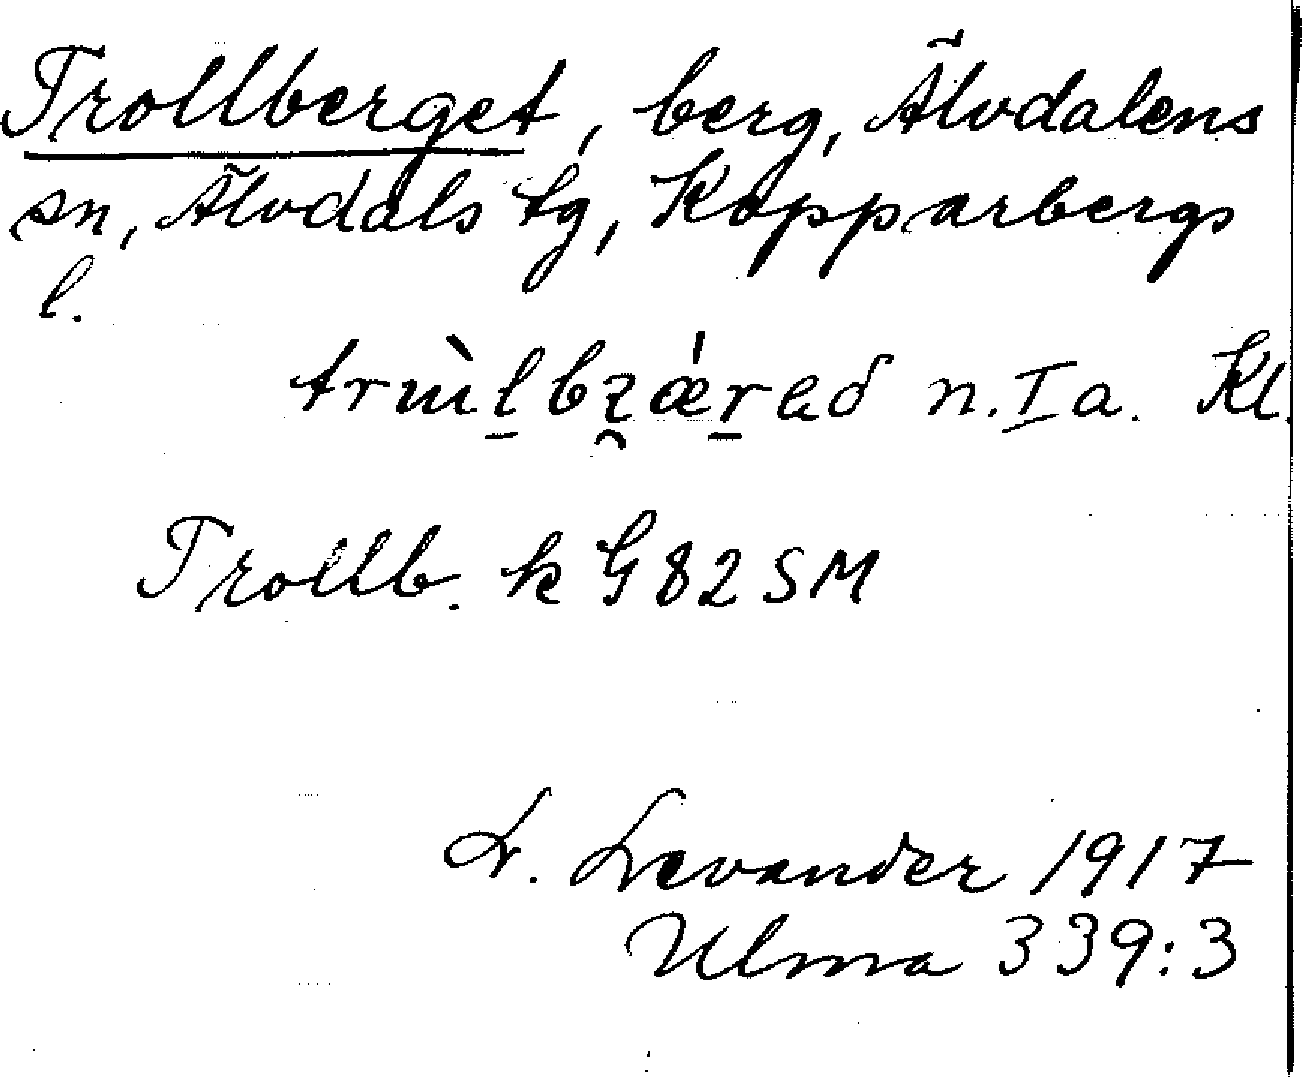 Trollberget, berg, Älvdalens
sn, Älvdals tg, Kopparbergs
l.
n. I a. Kl.
Trollb. k G82SM
L. Levander 1917
Ulma 339:3